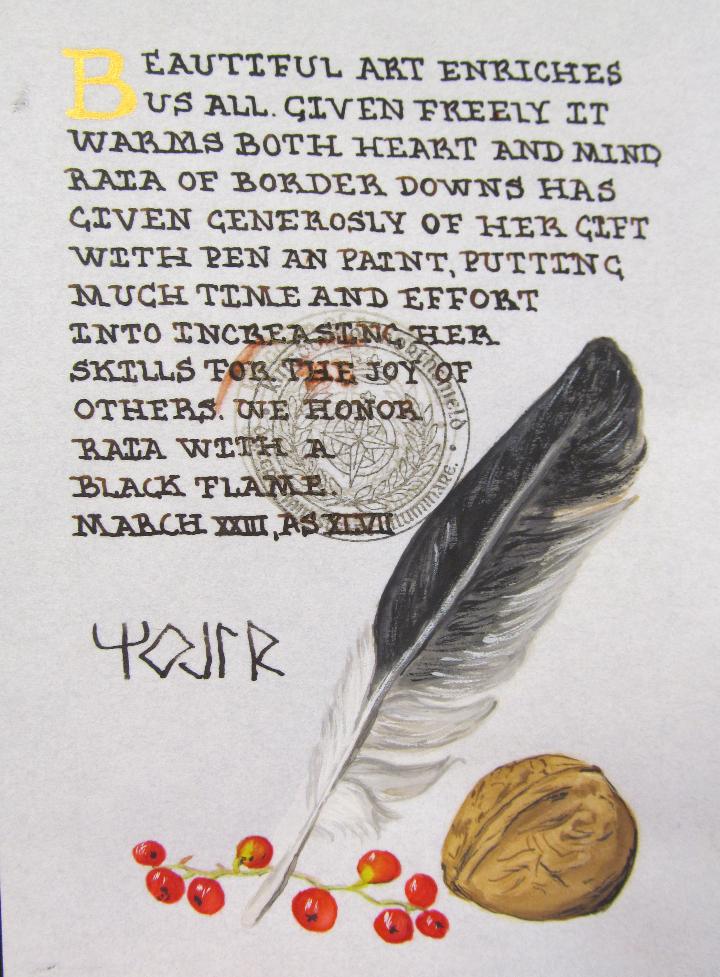 BEAUTIFUL ART ENRICHES
US ALL. GIVEN FREELY IT
WARMS BOTH HEART AND MIND
RAIA OF BORDER DOWNS HAS
GIVEN GENEROSLY OF HER GIFT
WITH PEN AN PAINT, PUTTING
MUCH TIME AND EFFORT
INTO INCREASING HER
SKILLS FOR THE JOY OF
OTHERS. WE HONOR
RAIA WITH A
BLACK FLAME.
MARCH XXIII, AS XLVII